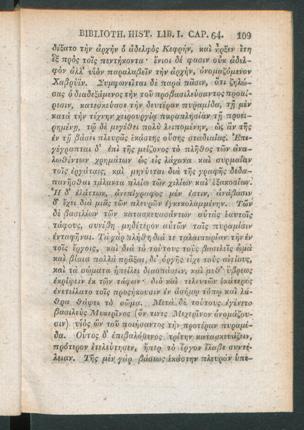 BIBLIOTH. HIST. LIB. I. CAP. 64. 109
δέξατο τὴν ἀρχὴν ὁ ἀδελφὸς Κεφρὴν, καὶ ἦρξεν ἔτη
ἓξ πρὸς τοῖς πεντήκοντα· ἔνιοι δέ φασιν οὐκ ἀδελ-
φὸν ἀλλ' υἱὸν παραλαβεῖν τὴν ἀρχὴν, ὀνομαζόμενον
Χαβρύϊν. Συμφωνεῖται δὲ παρὰ πᾶσιν, ὅτι ζηλώ-
σας ὁ διαδεξάμενος τὴν τοῦ προβασιλεύσαντος προαί-
ρεσιν, κατεσκεύασε τὴν δευτέραν πυραμίδα, τῇ μὲν
κατὰ τὴν τέχνην χειρουργίᾳ παραπλησίαν τῇ προει-
ρημένῃ, τῷ δὲ μεγέθει πολὺ λειπομένην, ὡς ἂν τῆς
ἐν τῇ βάσει πλευρᾶς ἑκάστης οὔσης σταδιαίας. Ἐπι-
γέγραπται δ' ἐπὶ τῆς μείζονος τὸ πλῆθος τῶν ἀνα-
λωθέντων χρημάτων ὡς εἰς λάχανα καὶ συρμαίαν
τοῖς ἐργάταις, καὶ μηνύεται διὰ τῆς γραφῆς δεδα-
πανῆσθαι τάλαντα πλείω τῶν χιλίων καὶ ἑξακοσίων.
Ἡ δ' ἐλάττων, ἀνεπίγραφος μέν ἐστιν, ἀνάβασιν
δ' ἔχει διὰ μιᾶς τῶν πλευρῶν ἐγκεκολαμμένην. Τῶν
δὲ βασιλέων τῶν κατασκευασάντων αὐτὰς ἑαυτοῖς
τάφους, συνέβη μηδέτερον αὐτῶν ταῖς πυραμίσιν
ἐνταφῆναι. Τὰ γὰρ πλήθη διά τε ταλαιπωρίαν τὴν ἐν
τοῖς ἔργοις, καὶ διὰ τὸ τούτους τοὺς βασιλεῖς ὠμὰ
καὶ βίαια πολλὰ πρᾶξαι, δι' ὀργῆς εἶχε τοὺς αἰτίους,
καὶ τὰ σώματα ἠπείλει διασπάσειν, καὶ μεθ' ὕβρεως
ἐκρίψειν ἐκ τῶν τάφων· διὸ καὶ τελευτῶν ἑκάτερος
ἐνετείλατο τοῖς προσήκουσιν ἐν ἀσήμῳ τόπῳ καὶ λά-
θρα θάψαι τὸ σῶμα. Μετὰ δὲ τούτους ἐγένετο
βασιλεὺς Μυκερῖνος (ὅν τινες Μεχερῖνον ὀνομάζου-
σιν) υἱὸς ὢν τοῦ ποιήσαντος τὴν προτέραν πυραμί-
δα. Οὗτος δ' ἐπιβαλόμενος τρίτην κατασκευάζειν,
πρότερον ἐτελεύτησεν, ἤπερ τὸ ἔργον λαβεῖν συντέ-
λειαν. Τῆς μὲν γὰρ βάσεως ἑκάστην πλευρὰν ὑπε-